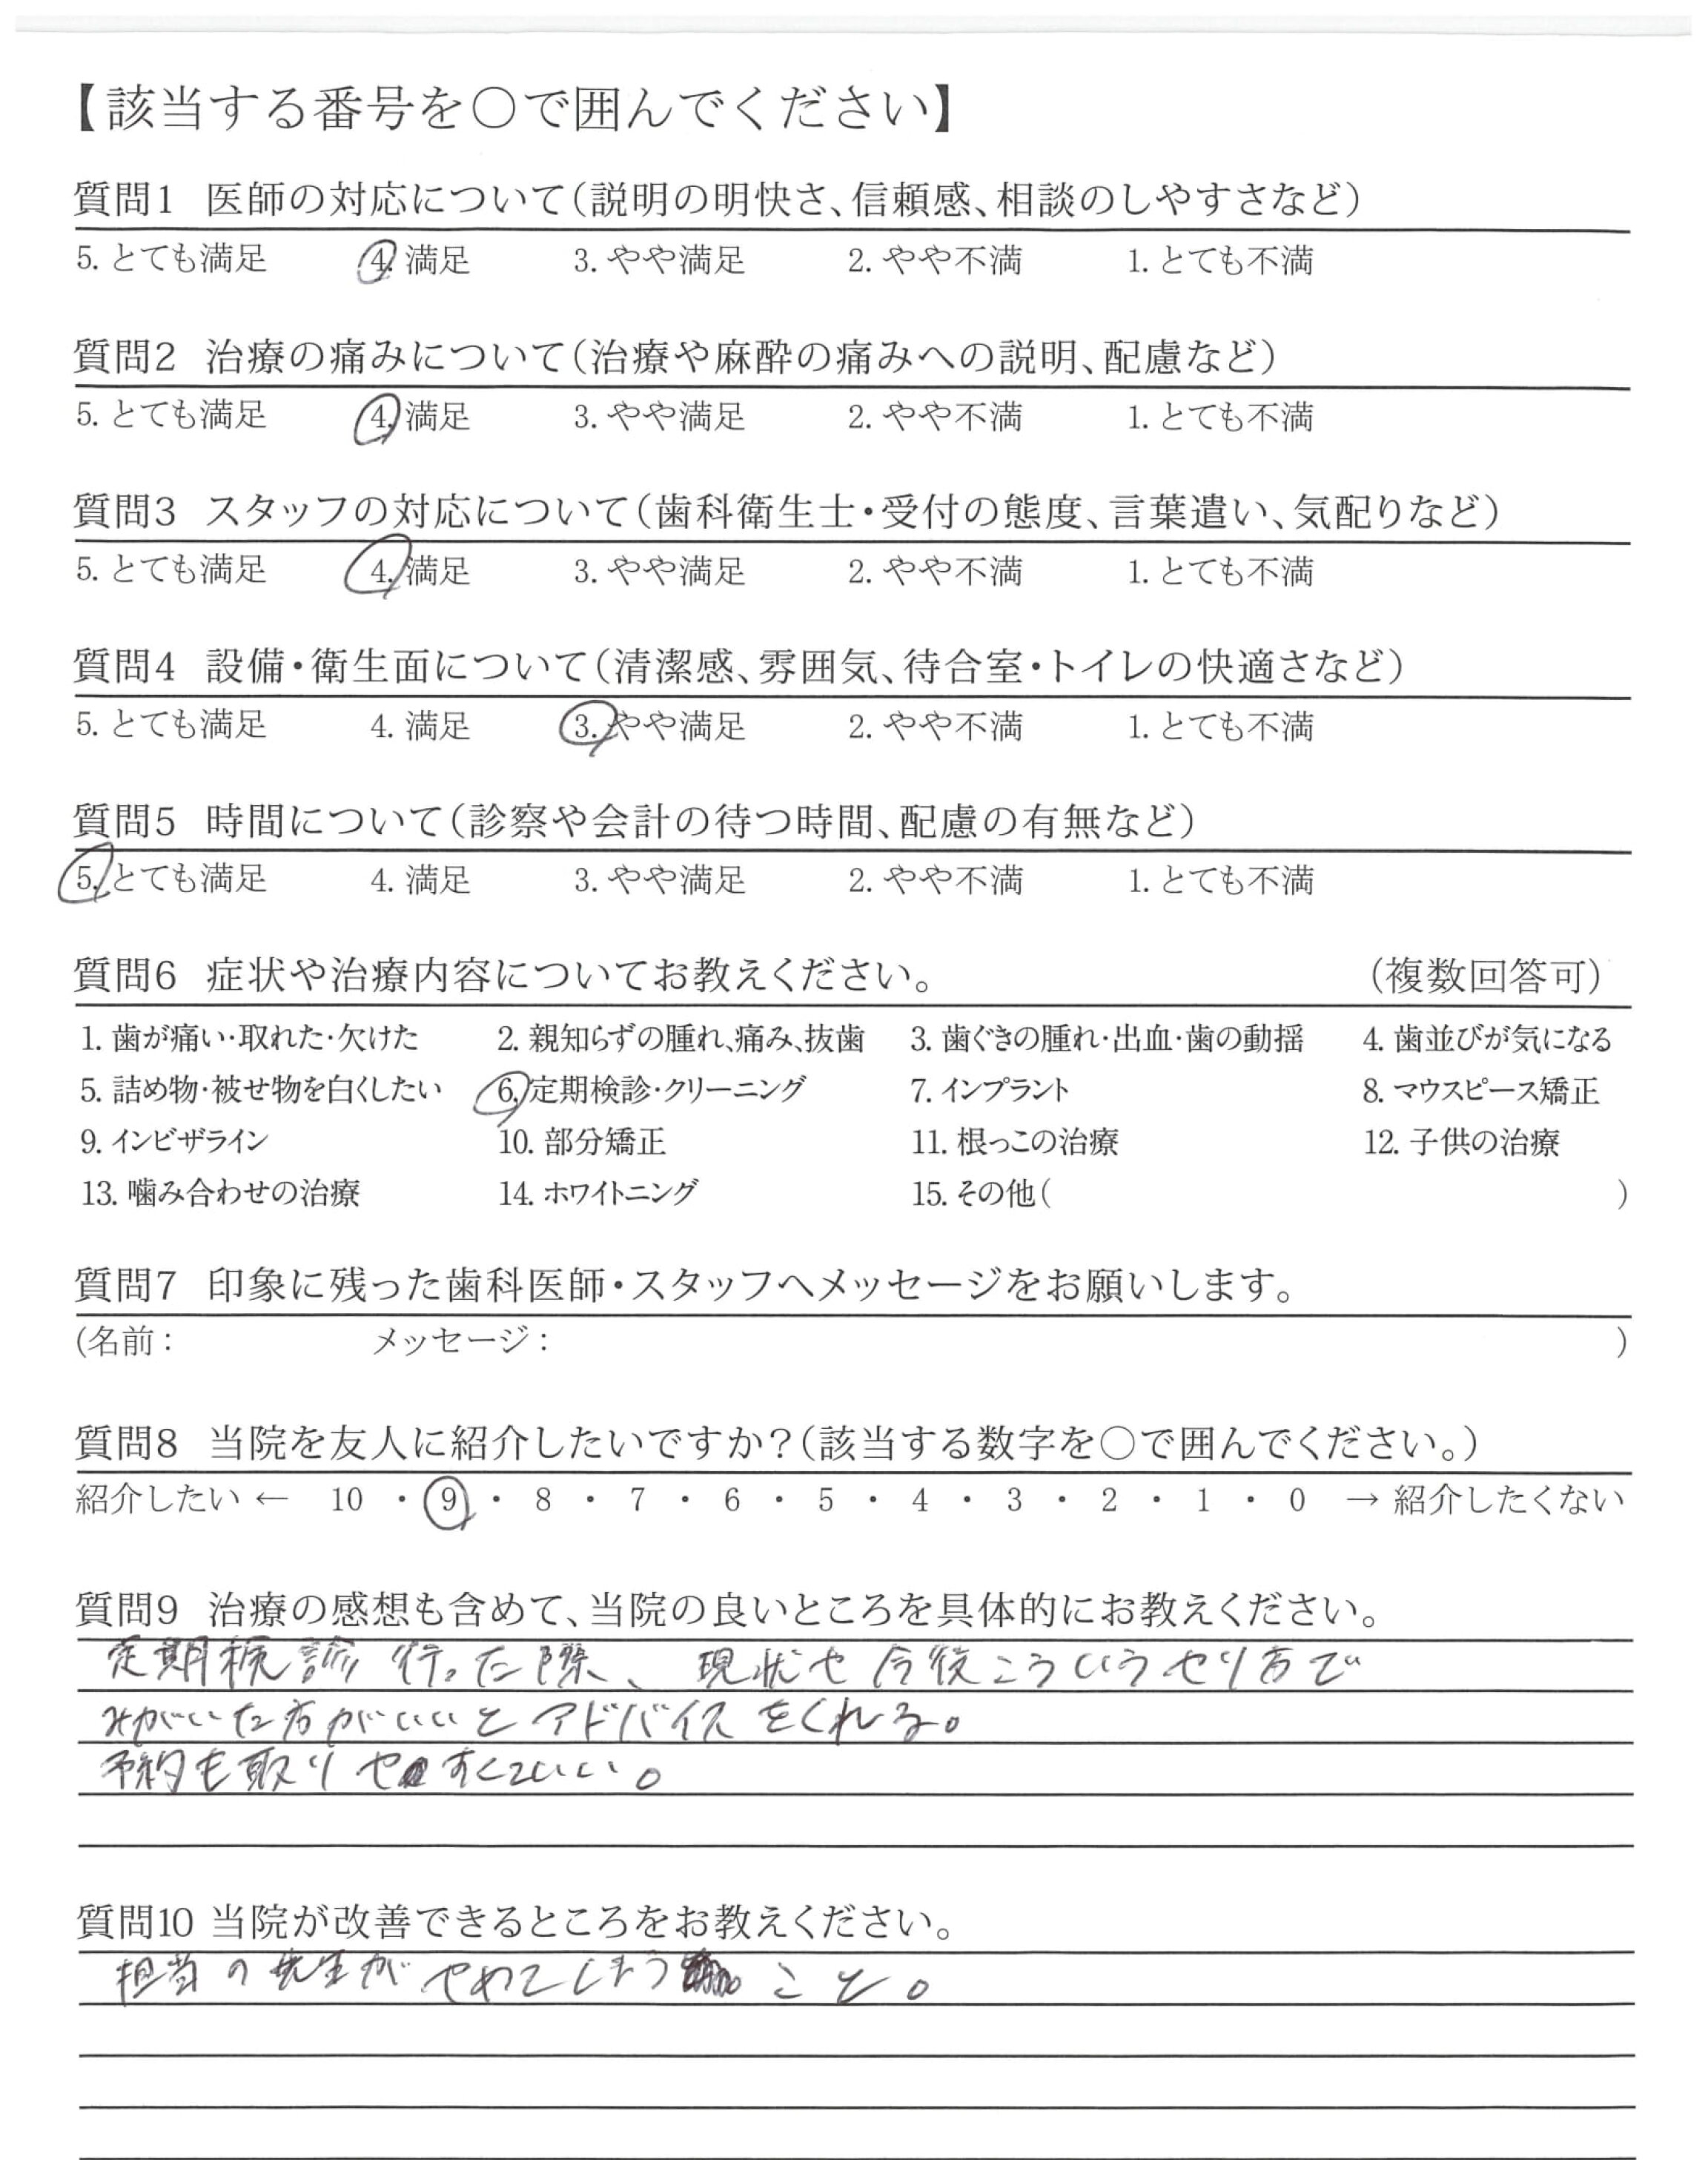 【該当する番号を○で囲んでください】
質問1 医師の対応について(説明の明快さ、信頼感、相談のしやすさなど)
5. とても満足 4. 満足 3. やや満足 2. やや不満 1. とても不満
質問2 治療の痛みについて(治療や麻酔の痛みへの説明、配慮など)
5. とても満足 4. 満足 3. やや満足 2. やや不満 1. とても不満
質問3 スタッフの対応について(歯科衛生士・受付の態度、言葉遣い、気配りなど)
5. とても満足 4. 満足 3. やや満足 2. やや不満 1. とても不満
質問4 設備・衛生面について(清潔感、雰囲気、待合室・トイレの快適さなど)
5. とても満足 4. 満足 3. やや満足 2. やや不満 1. とても不満
質問5 時間について(診察や会計の待つ時間、配慮の有無など)
5. とても満足 4. 満足 3. やや満足 2. やや不満 1. とても不満
質問6 症状や治療内容についてお教えください。 (複数回答可)
1. 歯が痛い・取れた・欠けた 2. 親知らずの腫れ、痛み、抜歯 3. 歯ぐきの腫れ・出血・歯の動揺 4. 歯並びが気になる
5. 詰め物・被せ物を白くしたい 6. 定期検診・クリーニング 7. インプラント 8. マウスピース矯正
9. インビザライン 10. 部分矯正 11. 根っこの治療 12. 子供の治療
13. 噛み合わせの治療 14. ホワイトニング 15. その他( )
質問7 印象に残った歯科医師・スタッフへメッセージをお願いします。
(名前: メッセージ: )
質問8 当院を友人に紹介したいですか?(該当する数字を○で囲んでください。)
紹介したい ← 10 ・ 9 ・ 8 ・ 7 ・ 6 ・ 5 ・ 4 ・ 3 ・ 2 ・ 1 ・ 0 → 紹介したくない
質問9 治療の感想も含めて、当院の良いところを具体的にお教えください。
定期検診行った際、現状や今後こういうやり方で
みがいた方がいいとアドバイスをくれる。
予約も取りやすくていい。
質問10 当院が改善できるところをお教えください。
担当の先生がやめてしまうこと。